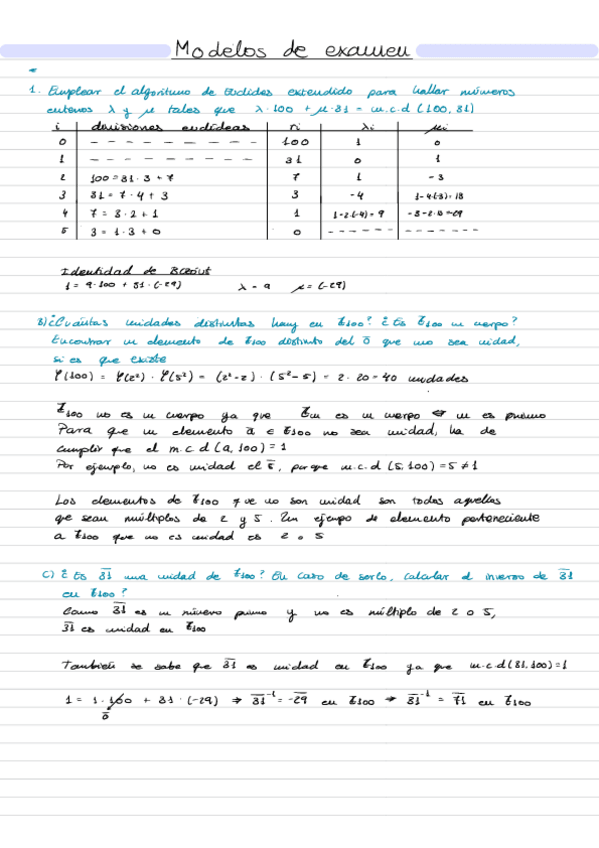 Modelos de examen
1. Emplear el algoritmo de Euclides extendido para hallar números
enteros λ y μ tales que λ·100 + μ·31 = m.c.d (100, 31)
i divisiones euclídeas ri λi μi
0 - - - - - - - - - 100 1 0
1 - - - - - - - - - 31 0 1
2 100 = 31·3 + 7 7 1 -3
3 31 = 7·4 + 3 3 -4 1-4(-3) = 13
4 7 = 3·2 + 1 1 1-2·(-4) = 9
5 3 = 1·3 + 0 0 - - - - - - - - - - - - -
Identidad de Bézout
1 = 9·100 + 31·(-29) λ = 9 μ = (-29)
B) ¿Cuántas unidades distintas hay en ℤ100? ¿Es ℤ100 un cuerpo?
Encontrar un elemento de ℤ100 distinto del 0̄ que no sea unidad,
si es que existe
φ(100) = φ(2²) · φ(5²) = (2²-2) · (5²-5) = 2·20 = 40 unidades
ℤ100 no es un cuerpo ya que ℤm es un cuerpo ⇔ m es primo
Para que un elemento ā ∈ ℤ100 no sea unidad, ha de
cumplir que el m.c.d (a, 100) = 1
Por ejemplo, no es unidad el 5̄, porque m.c.d (5, 100) = 5 ≠ 1
Los elementos de ℤ100 que no son unidad son todos aquellos
que sean múltiplos de 2 y 5. Un ejempo de elemento perteneciente
a ℤ100 que no es unidad es 2 o 5
C) ¿Es 3̄1̄ una unidad de ℤ100? En caso de serlo, calcular el inverso de 3̄1̄
en ℤ100?
Como 3̄1̄ es un número primo y no es múltiplo de 2 o 5,
3̄1̄ es unidad en ℤ100
También se sabe que 3̄1̄ es unidad en ℤ100 ya que m.c.d (31, 100) = 1
1 = 1·100 + 31·(-29) → 3̄1̄⁻¹ = -2̄9̄ en ℤ100 → 3̄1̄⁻¹ = 7̄1̄ en ℤ100
0̄